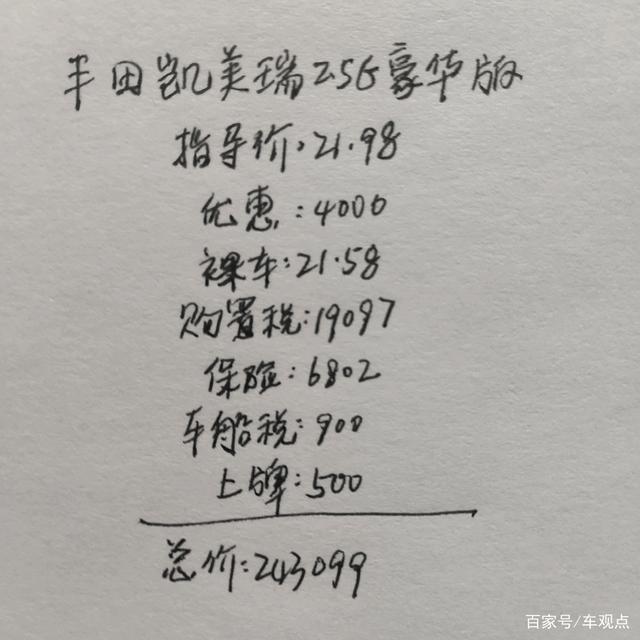 丰田凯美瑞2.5G豪华版
指导价:21.98
优惠:4000
裸车:21.58
购置税:19097
保险:6802
车船税:900
上牌:500
总价:243099
百家号/车观点